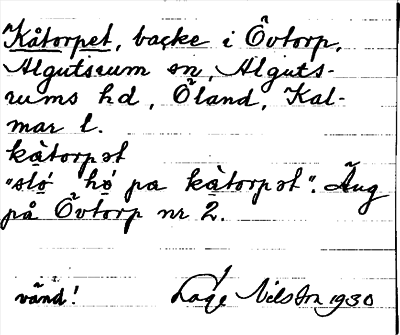 Kåtorpet, backe i Övtorp,
Algutsrum sn, Alguts-
rums hd, Öland, Kal-
mar l.
kàtorpət
"sló hǫ́ pa kàtorpət". Äng
på Övtorp nr 2.
vänd! Lage Nilsson 1930